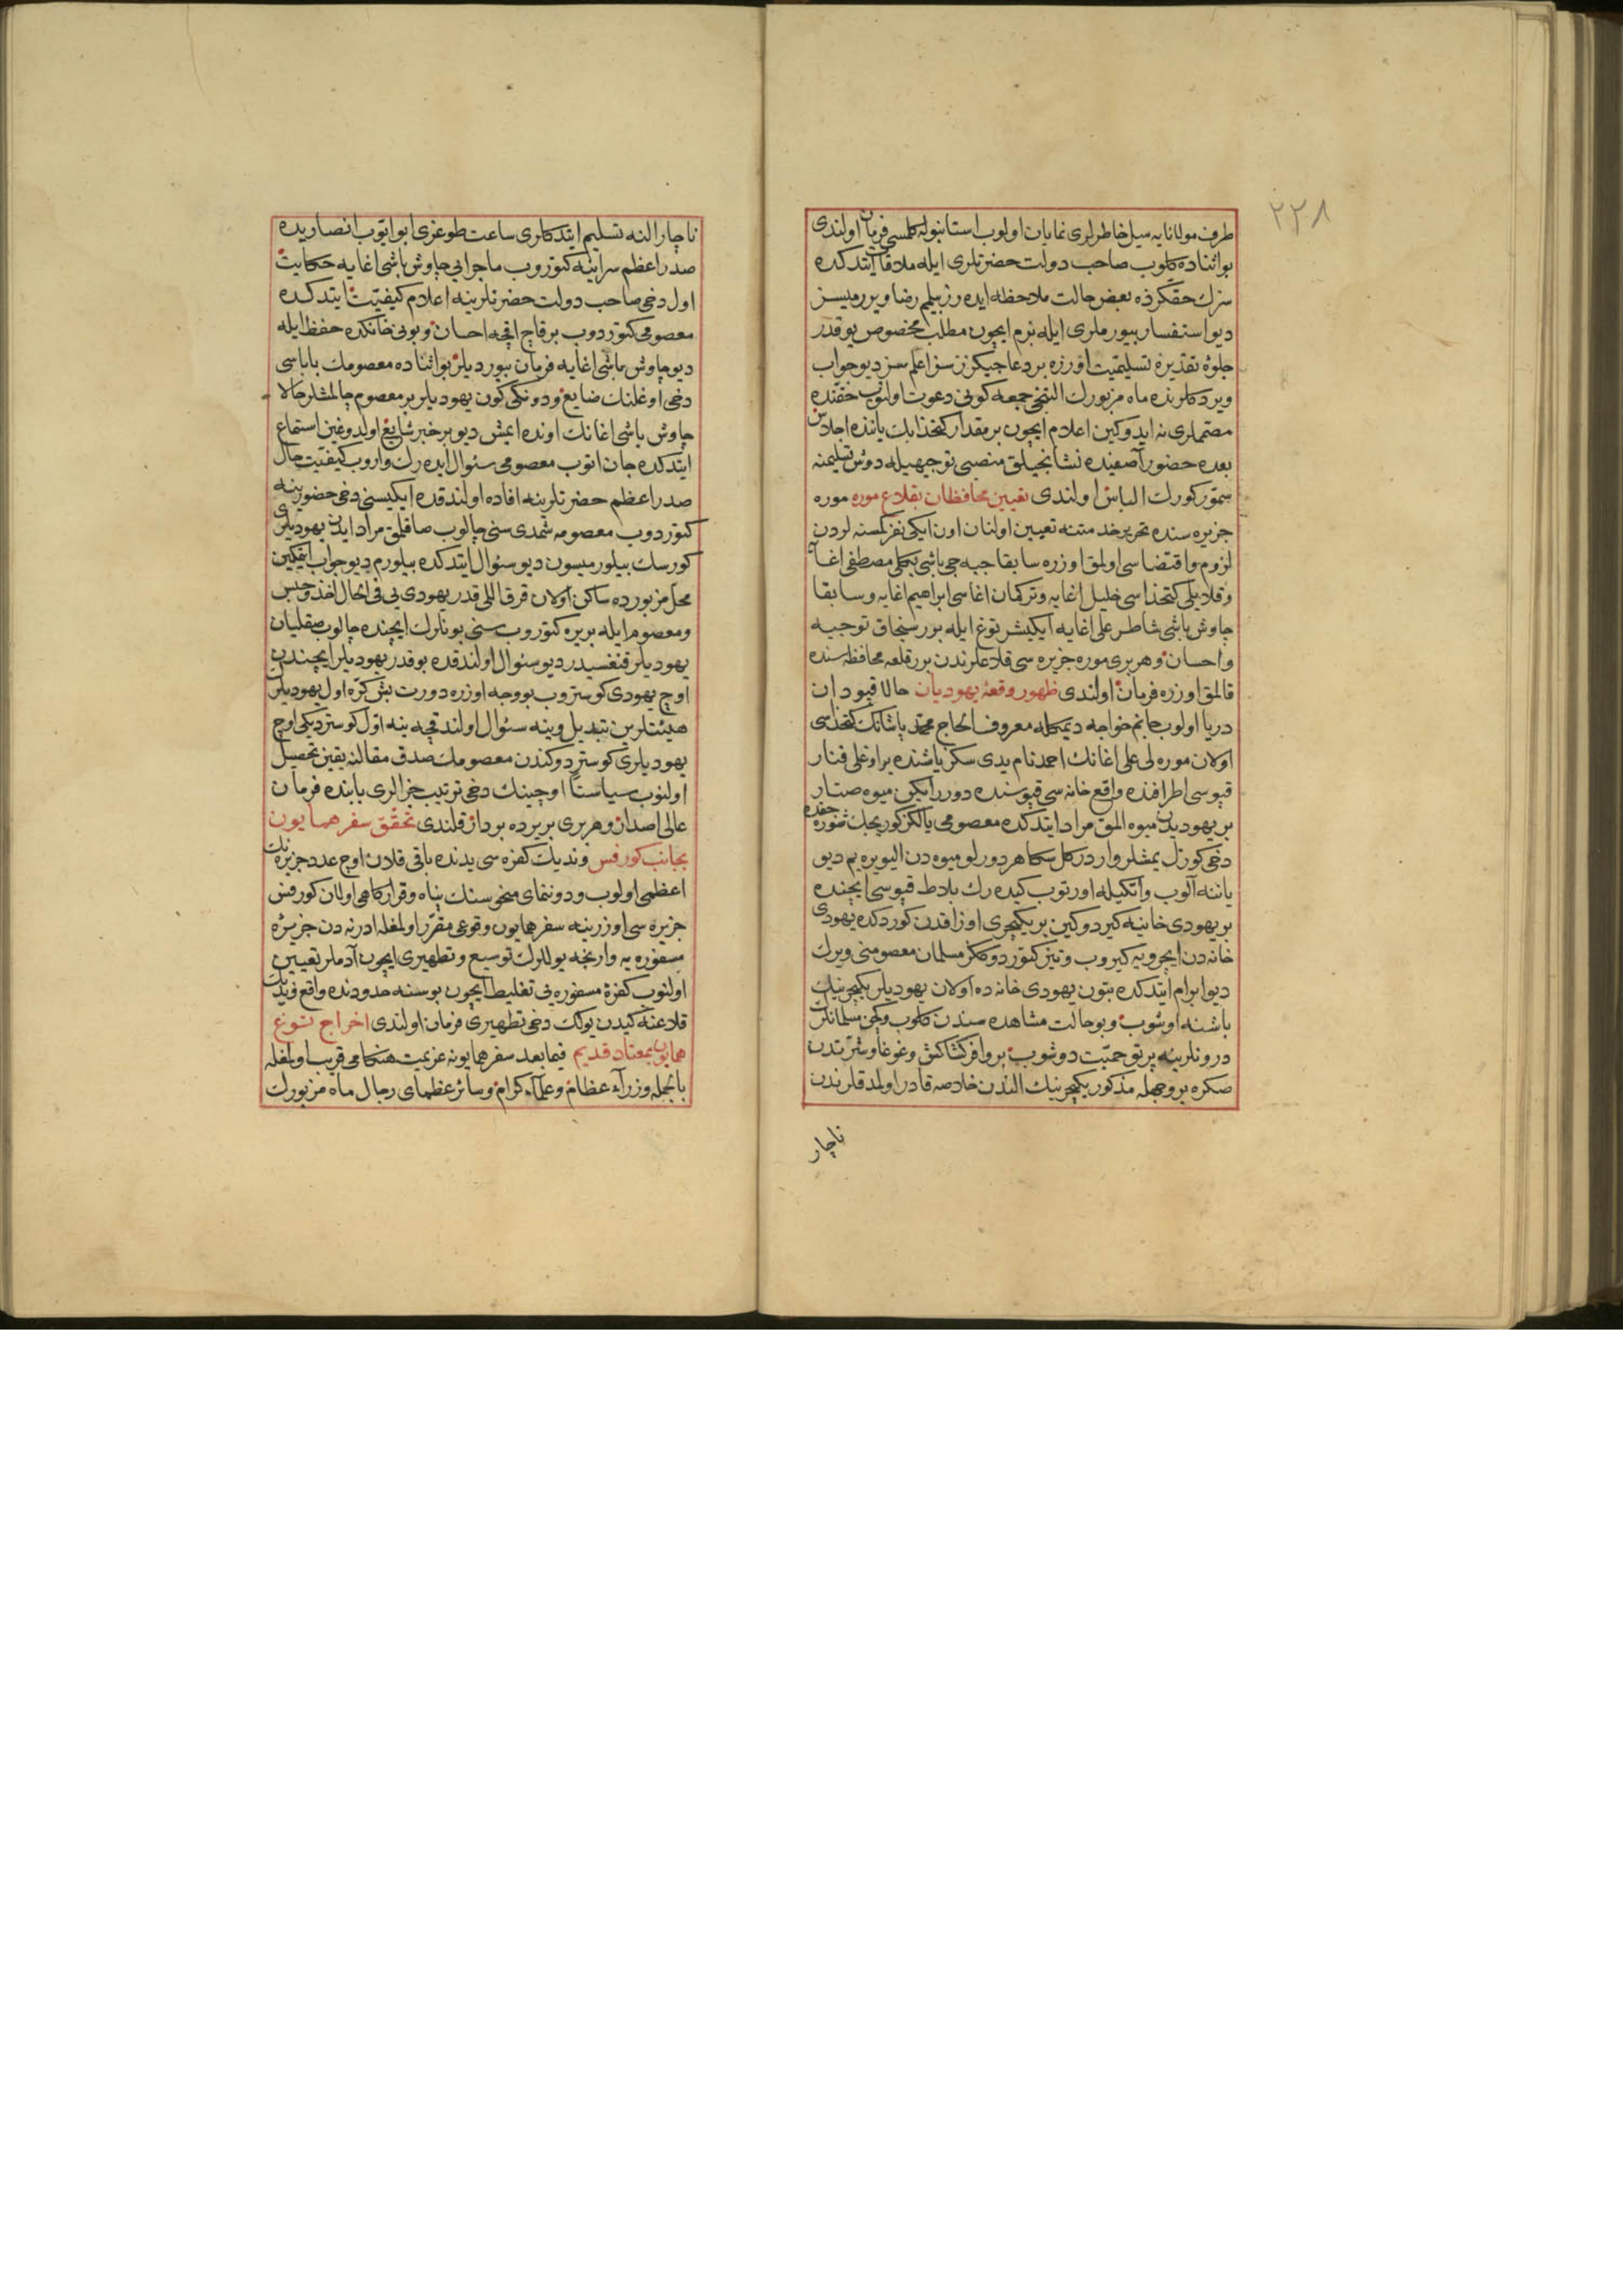 ٢٢٨
طرف مولانايه ميل خاطرلرى نمايان اولوب استانبوله كلمسى فرمان اولندى
بو اثناده كلوب صاحب دولت حضرتلرى ايله ملاقات ايتدكده
سزك حقكزده بعض حالت ملاحظه ايده رز بيلم رضا ويررميسز
ديو استفسار بيورملرى ايله بزم ايچون مطلب مخصوص يوقدر
جلوۀ تقديره تسليميت اوزره بر دعاجيكزز سز اعلم سز ديو جواب
ويردكلرنده ماه مزبورك التنجى جمعه كونى دعوت اولنوب حقنده
مصتملرى نه ايدوكين اعلام ايچون بر مقدار كتخدا بك ياننده اجلاس
بعده حضور آصفيده نشانجيلق منصبى توجيهيله دوش تسليمنه
سمور كورك الباس اولندى تعيين محافظان بقلاع موره موره
جزيره سنده تحرير خدمتنه تعيين اولنان اون ايكى نفر كمسنه لردن
لزوم واقتضاسى اولمق اوزره سابقا جبه جى باشى بكملى مصطفى اغا
وقلايلى كتخداسى خليل اغايه وتركمان اغاسى ابراهيم اغايه وسابقا
چاوش باشى شاطر على اغايه ايكيشر توغ ايله برر سنجاق توجيه
واحسان وهر برى موره جزيره سى قلاعلرندن برر قلعه محافظه سنده
قالمق اوزره فرمان اولندى ظهور وقعۀ يهوديان حالا قپودان
دريا اولوب جانم خواجه ديمكله معروف الحاج محمد پاشانك كتخداسى
اولان موره لى على اغانك احمد نام يدى سكز ياشنده بر اوغلى فنار
قپوسى اطرافنده واقع خانه سى قپوسنده دورر ايكن ميوه صتار
بر يهوديدن ميوه المق مراد ايتدكده معصومى يالكز كوريجك
دخى كوزل يمشلر واردر كل سكا هر دورلو ميوه دن اليويره يم ديو
ياننه آلوب واتكيله اورتوب كيده رك بلاط قپوسى ايچنده
بر يهودى خانيه كيردوكين بر يكيچرى اوزاقدن كوردكده يهودى
خانه دن ايچرويه كيروب وتيز كتوردوككز مسلمان معصومنى ويرك
ديو ابرام ايتدكده بتون يهودى خانه ده اولان يهوديلر يكيچرينك
باشنه اوشوب وبو حالت مشاهده سندن كلوب وكچن مسلمانلرك
درونلرينه پرتو حميت دوشوب بر وافر كشاكش وغوغا وشرتدن
صكره بر وجهله مذكور يكيچرينك الندن خلاصه قادر اولمدقلرندن
ناچار
ناچار النه تسليم ايتدكلرى ساعت طوغرى ابو ايوب انصاريده
صدراعظم سراينه كتوروب ماجرايى چاوش باشى اغايه حكايت
اول دخى صاحب دولت حضرتلرينه اعلام كيفيت ايتدكده
معصومى كتوردوب بر قاچ اقچه احسان وبونى خانكده حفظ ايله
ديو چاوش باشى اغايه فرمان بيورديلر بو اثناده معصومك باباسى
دخى اوغلنك ضايع ودونكى كون يهوديلر بر معصوم چالمشلر حالا
چاوش باشى اغانك اونده ايمش ديو بر خبر شايع اولدوغين استماع
ايتدكده جان اتوب معصومى سئوال ايده رك واروب كيفيت حال
صدراعظم حضرتلرينه افاده اولندقده ايكيسنى دخى حضورينه
كتوردوب معصومه شمدى سنى چالوب صاقلمق مراد ايدن يهوديلرى
كورسك بيلورميسون ديو سئوال ايتدكده بيلورم ديو جواب ايتمكين
محل مزبورده ساكن اولان قرق اللى قدر يهودى يى فى الحال اخذ وحبس
ومعصوم ايله بريره كتوروب سنى بونلرك ايچنده چالوب صقليان
يهوديلر قنغسيدر ديو سئوال اولندقده بو قدر يهوديلر ايچندن
اوچ يهودى كوستروب بو وجه اوزره دورت بش كره اول يهوديلرك
هيئتلرين تبديل وينه سئوال اولندقجه ينه اول كوستردیكى اوچ
يهوديلرى كوستردوكندن معصومك صدق مقالنه يقين تحصيل
اولنوب سياستا اوچينك دخى ترتيب جزالرى بابنده فرمان
عالى اصدار وهر برى بريرده بردار قلندى تحقق سفر همايون
بجانب كورفس ونديك كفره سى يدنده باقى قلان اوچ عدد جزيره نك
اعظمى اولوب ودوننماى منحوسنك پناه وقراركاهى اولان كورفس
جزيره سى اوزرينه سفر همايون وقوعى مقرر اولمغله ادرنه دن جزيرۀ
مسفوره يه وارنجه يوللرك توسيع وتطهيرى ايچون آدملر تعيين
اولنوب كفرۀ مسفوره يى تغليط ايچون بوسنه حدودنده واقع ونديك
قلاعنه كيدن يولك دخى تطهيرى فرمان اولندى اخراج توغ
همايون بمعتاد قديم فيما بعد سفر همايونه عزيمت هنكامى قريب اولمغله
بالجمله وزرآء عظام وعلمآء كرام وسائر عظماى رجال ماه مزبورك